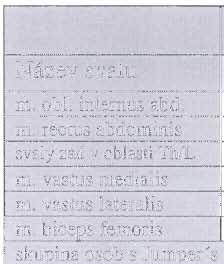 Název svalu
m. obl. internus abd.
m. rectus abdominis
svaly zad v oblasti Th/L
m. vastus medialis
m. vastus lateralis
m. biceps femoris
skupina osob s Jumper´s